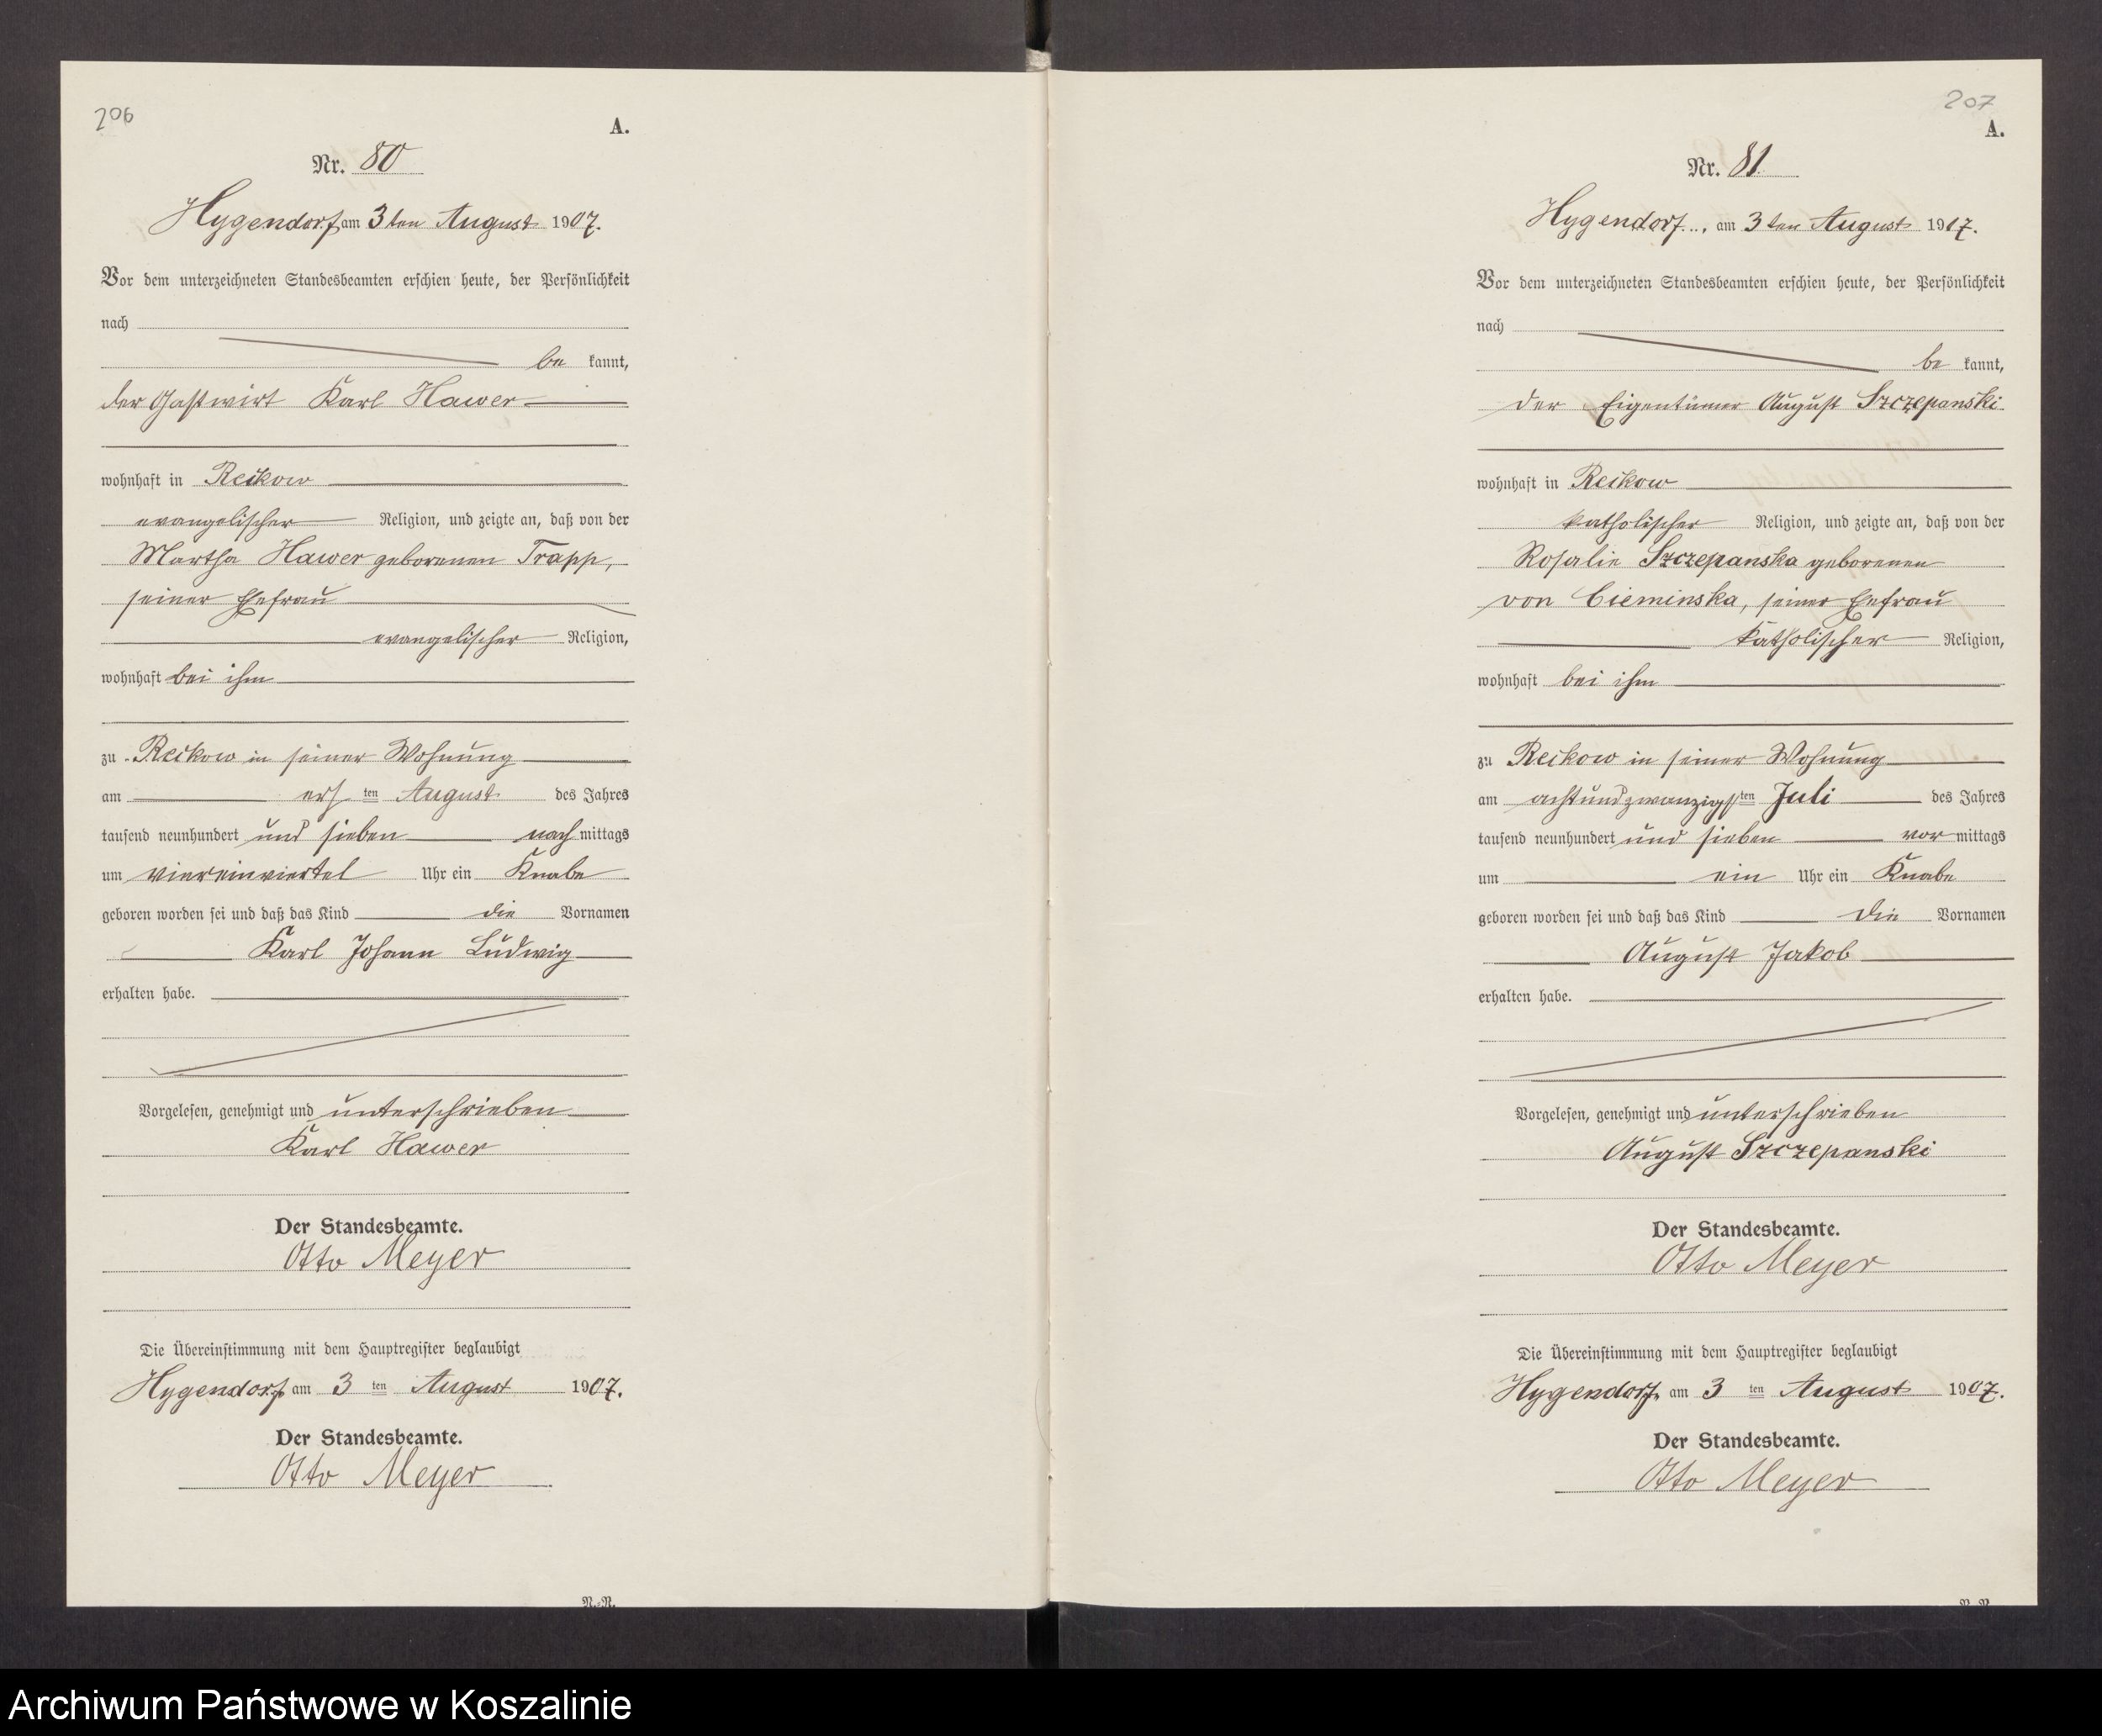 206
A.
Nr. 80
Hygendorf, am 3ten August 1907.
Vor dem unterzeichneten Standesbeamten erschien heute, der Persönlichkeit
nach
be kannt,
der Gastwirt Karl Hawer
wohnhaft in Reikow
evangelischer Religion, und zeigte an, daß von der
Martha Hawer geborenen Trapp,
seiner Ehefrau
evangelischer Religion,
wohnhaft bei ihm
zu Reikow in seiner Wohnung
am ersten August des Jahres
tausend neunhundert und sieben nach mittags
um viereinviertel Uhr ein Knabe
geboren worden sei und daß das Kind die Vornamen
Karl Johann Ludwig
erhalten habe.
Vorgelesen, genehmigt und unterschrieben
Karl Hawer
Der Standesbeamte.
Otto Meyer
Die Übereinstimmung mit dem Hauptregister beglaubigt
Hygendorf am 3 ten August 1907.
Der Standesbeamte.
Otto Meyer
N.-N.
207
A.
Nr. 81
Hygendorf, am 3ten August 1907.
Vor dem unterzeichneten Standesbeamten erschien heute, der Persönlichkeit
nach
be kannt,
der Eigentümer August Szczepanski
wohnhaft in Reikow
katholischer Religion, und zeigte an, daß von der
Rosalie Szczepanska geborenen
von Cieminska, seiner Ehefrau
katholischer Religion,
wohnhaft bei ihm
zu Reikow in seiner Wohnung
am achtundzwanzigsten Juli des Jahres
tausend neunhundert und sieben vor mittags
um ein Uhr ein Knabe
geboren worden sei und daß das Kind die Vornamen
August Jakob
erhalten habe.
Vorgelesen, genehmigt und unterschrieben
August Szczepanski
Der Standesbeamte.
Otto Meyer
Die Übereinstimmung mit dem Hauptregister beglaubigt
Hygendorf, am 3 ten August 1907.
Der Standesbeamte.
Otto Meyer
Archiwum Państwowe w Koszalinie